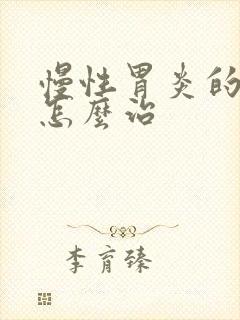 慢性胃炎的
怎麼治
李育臻